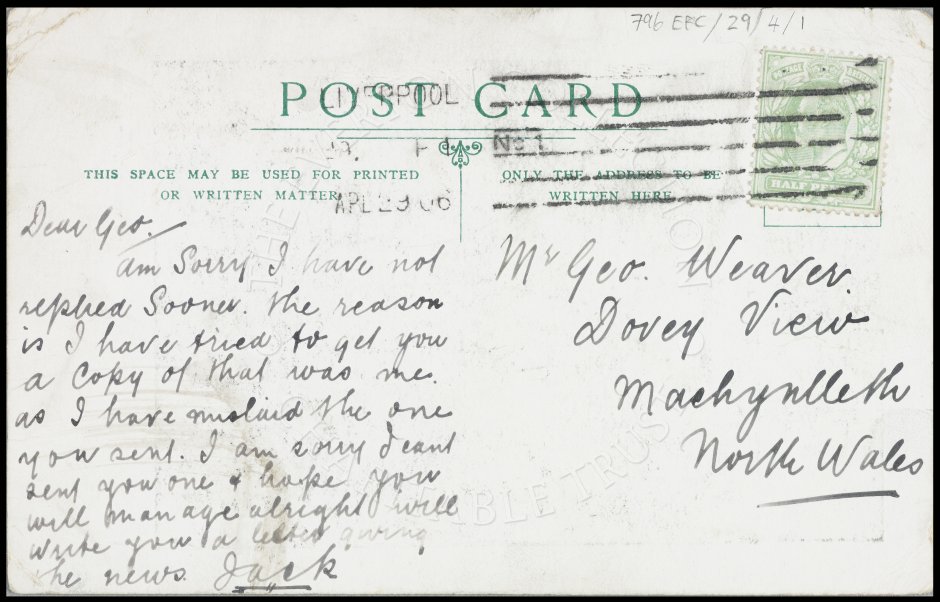 796 EFC/29/4/1
POST CARD
LIVERPOOL
No 1
APL 29 06
THIS SPACE MAY BE USED FOR PRINTED
OR WRITTEN MATTER
ONLY THE ADDRESS TO BE
WRITTEN HERE
HALF
Dear Geo.
am Sorry I have not
replied Sooner. the reason
is I have tried to get you
a Copy of that was me.
as I have mislaid the one
you sent. I am sorry I cant
sent you one & hope you
will manage alright will
write you a letter giving
the news. Jack
Mr Geo. Weaver.
Dovey View
Machynlleth
North Wales